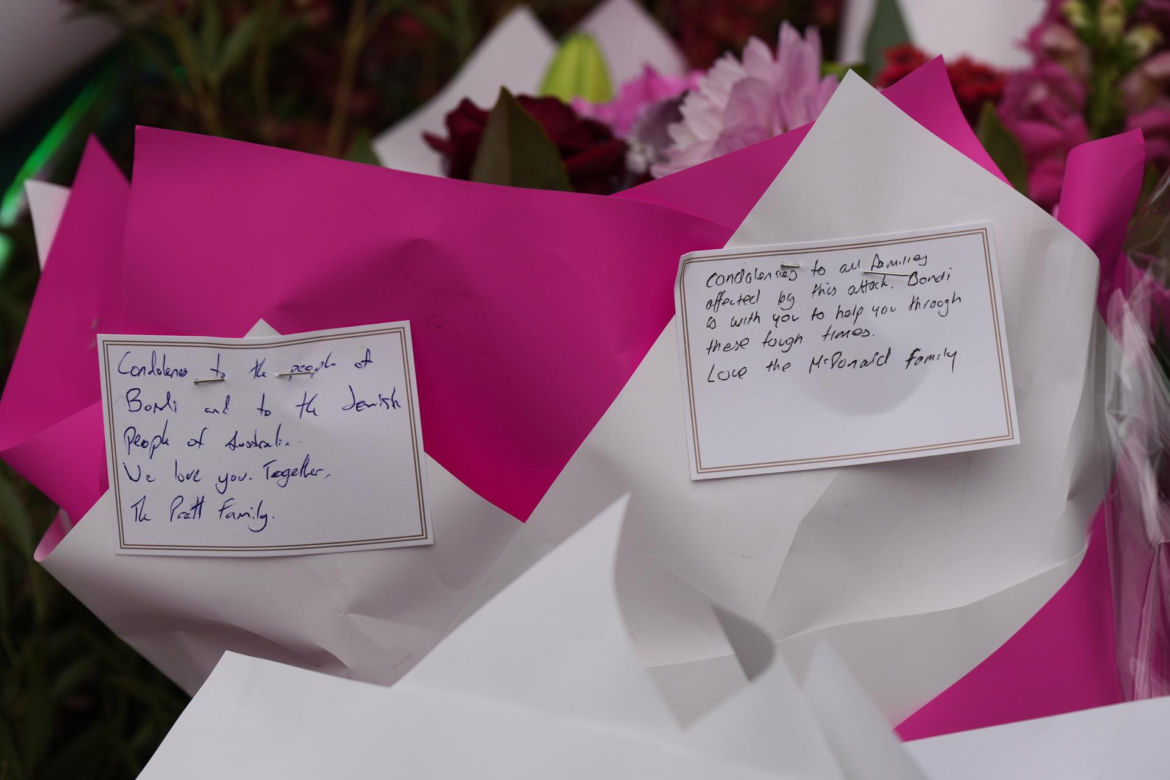 Condolences to the people of
Bondi and to the Jewish
People of Australia.
We love you. Together,
The Pratt Family.
Condolences to all families
affected by this attack. Bondi
is with you to help you through
these tough times.
Love the McDonald Family